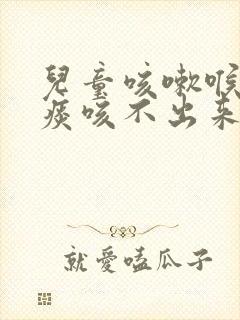 兒童咳嗽喉
痰咳不出來
就愛嗑瓜子